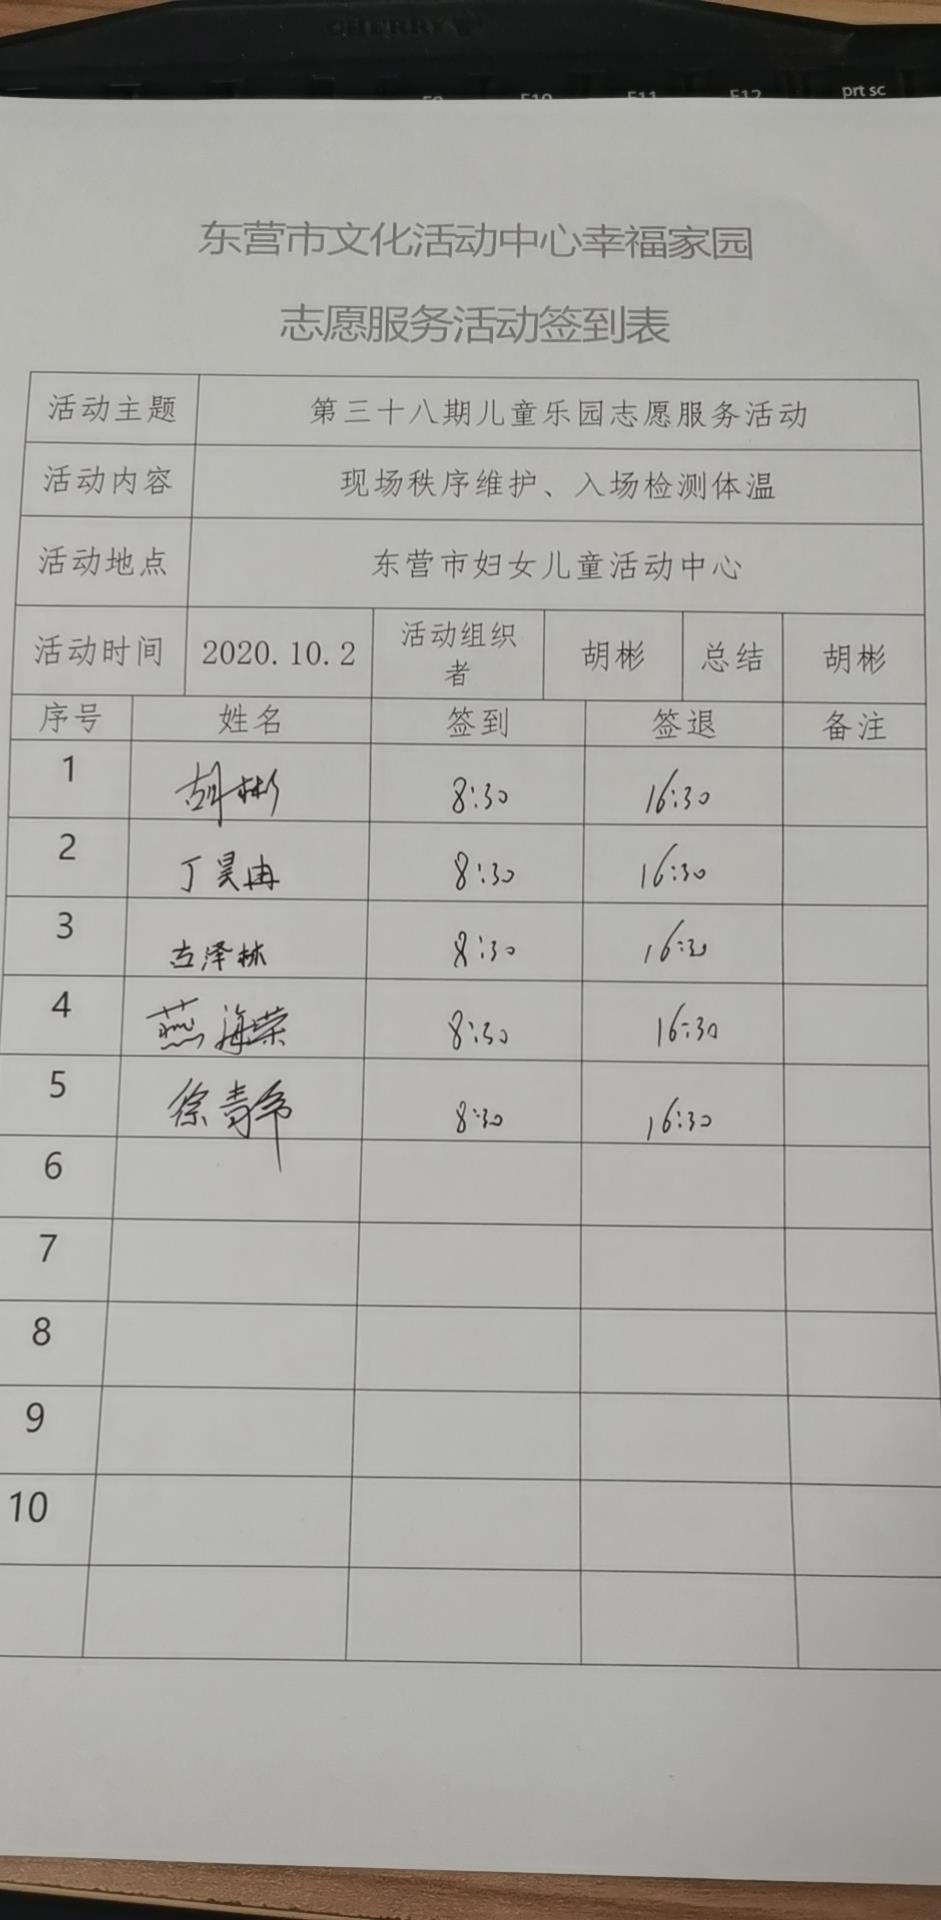 CHERRY
F9 F10 F11 F12 prt sc
东营市文化活动中心幸福家园
志愿服务活动签到表
活动主题 第三十八期儿童乐园志愿服务活动
活动内容 现场秩序维护、入场检测体温
活动地点 东营市妇女儿童活动中心
活动时间 2020.10.2 活动组织者 胡彬 总结 胡彬
序号 姓名 签到 签退 备注
1 胡彬 8:30 16:30
2 丁昊冉 8:30 16:30
3 古泽林 8:30 16:30
4 燕海荣 8:30 16:30
5 徐青 8:30 16:30
6
7
8
9
10